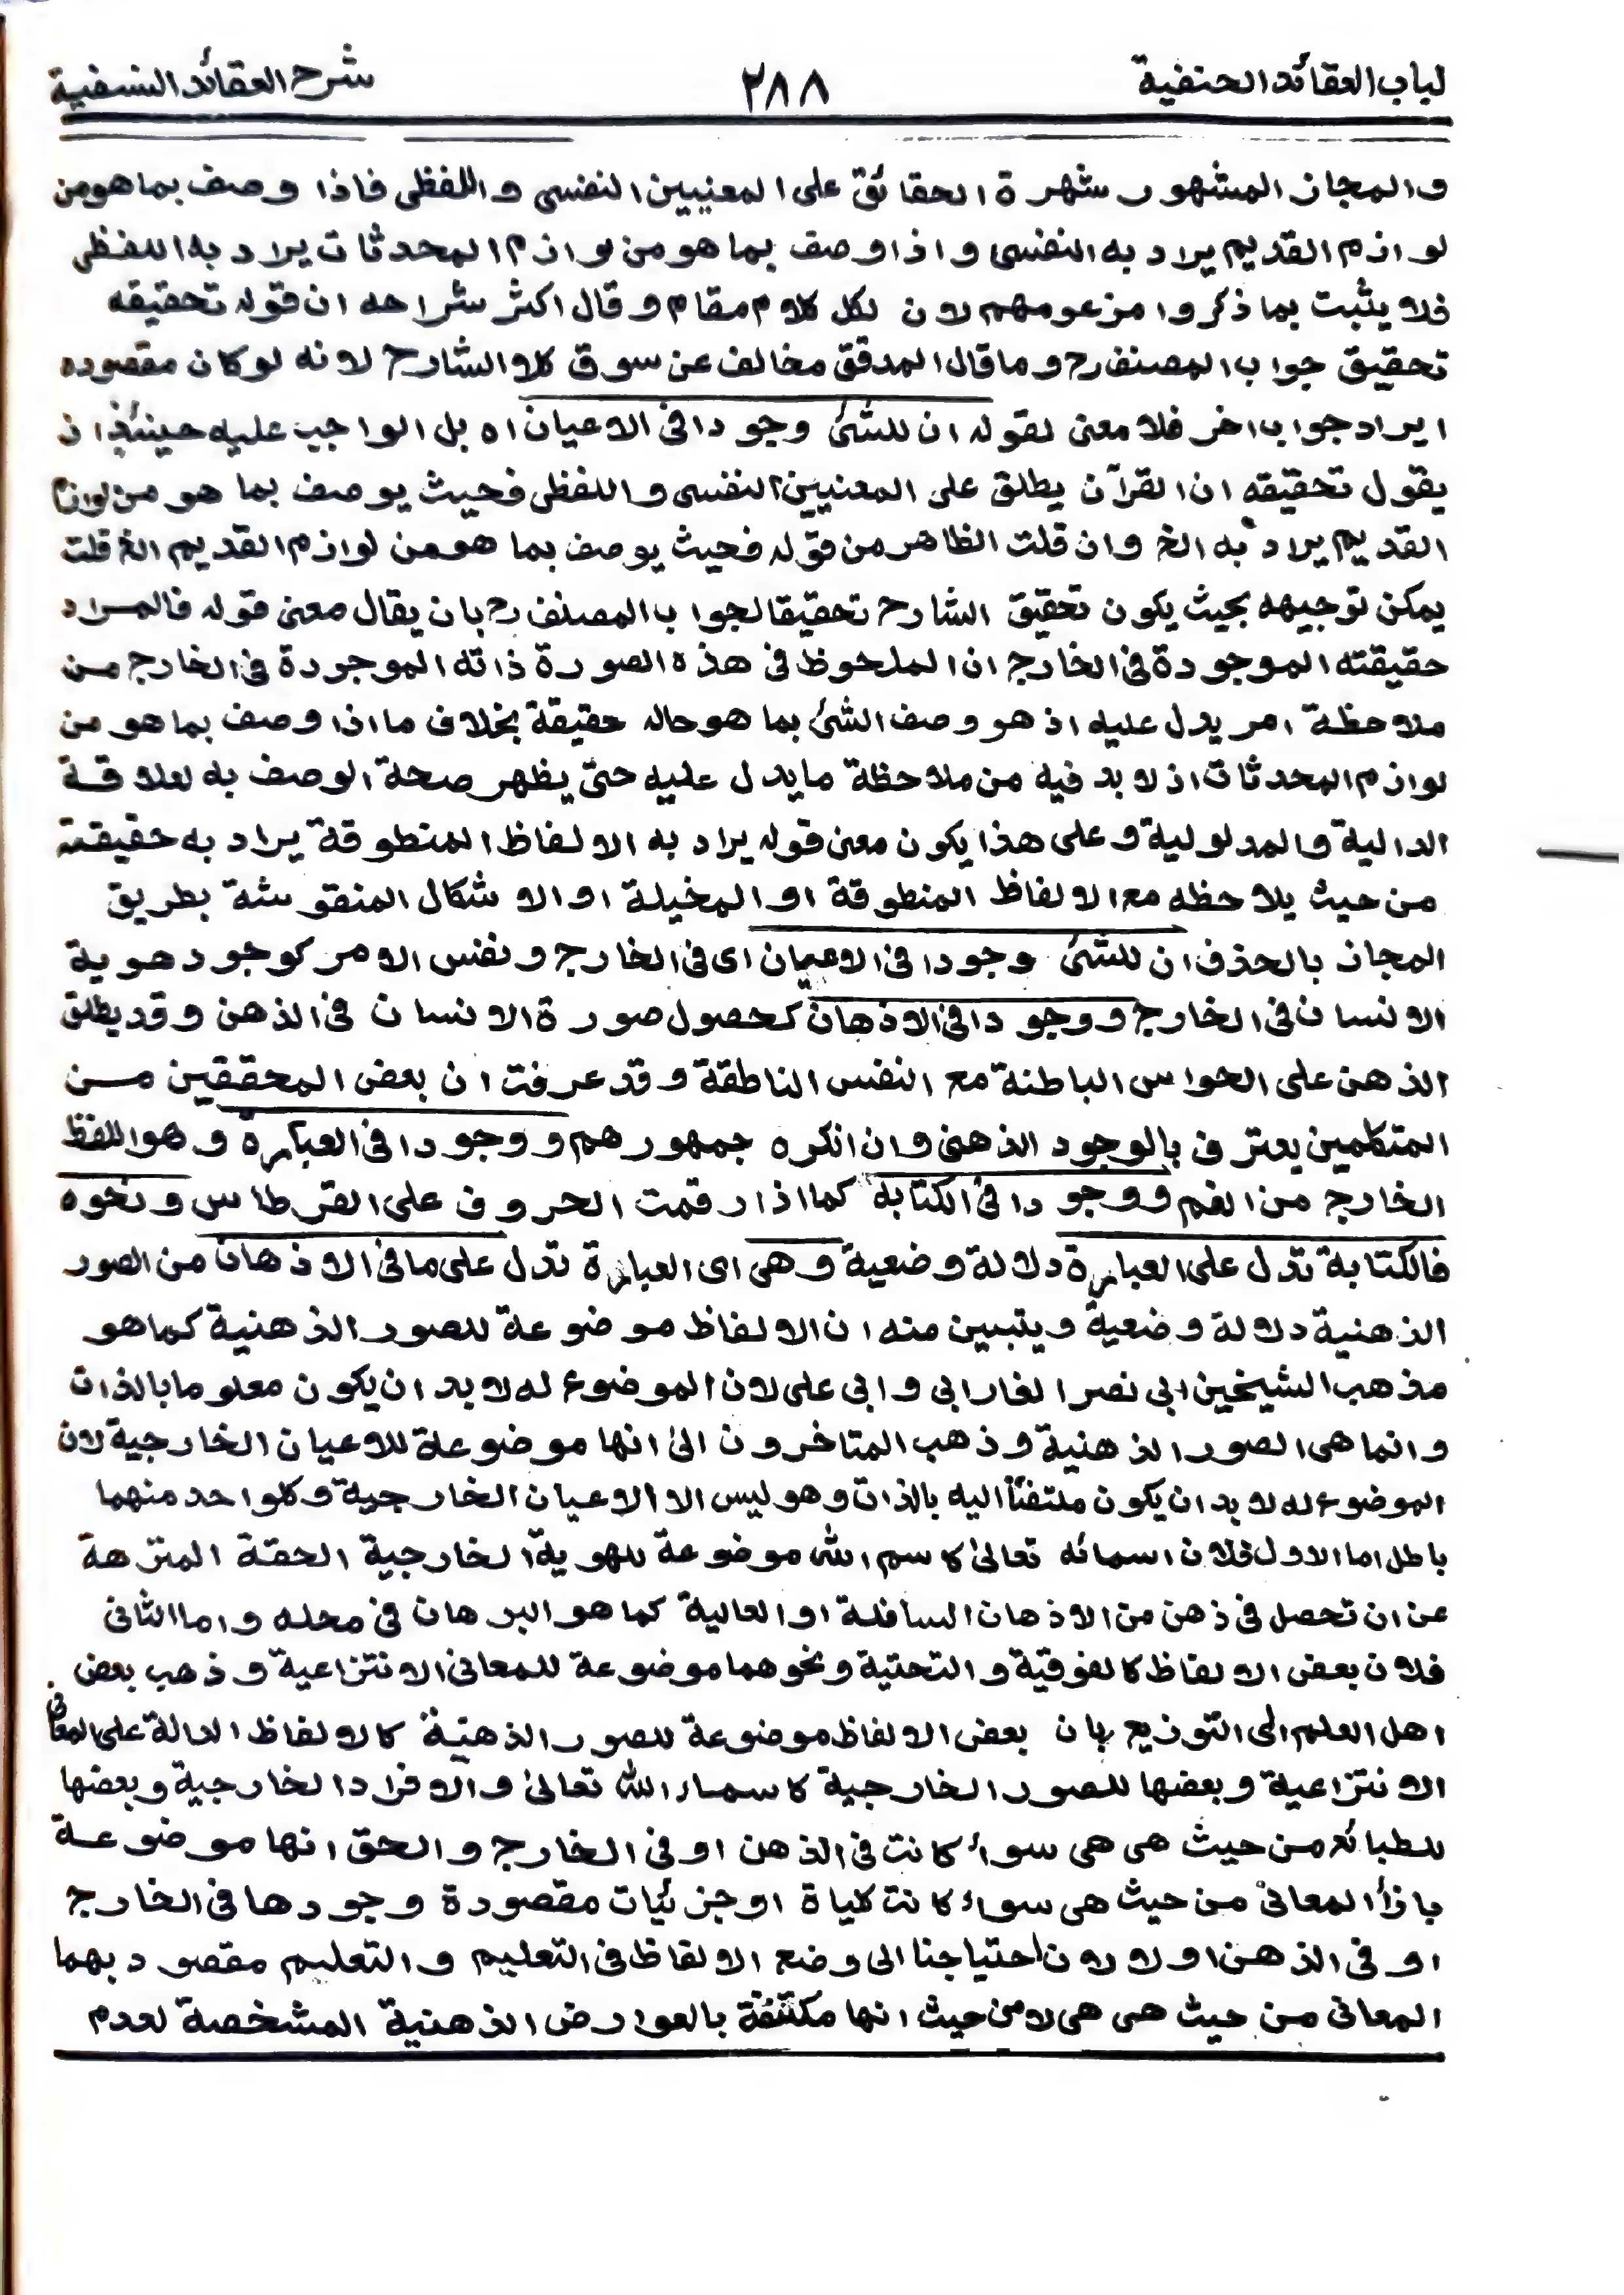 لباب العقائد الحنفية ٢٨٨ شرح العقائد النسفية
والمجاز المشهور شهرة الحقائق على المعنيين النفسى واللفظى فاذا وصف بما هو من
لوازم القديم يراد به النفسى واذا وصف بما هو من لوازم المحدثات يراد به اللفظى
فلا يثبت بما ذكروا مزعومهم لان لكل كلام مقام وقال اكثر شراحه ان قوله تحقيقه
تحقيق جواب المصنف رح وما قال المدقق مخالف عن سوق كلا الشارح لانه لو كان مقصوده
ايراد جواب اخر فلا معنى لقوله ان للشئ وجودا فى الاعيان اه بل الواجب عليه حينئذ ان
يقول تحقيقه ان القرآن يطلق على المعنيين النفسى واللفظى فحيث يوصف بما هو من لوازم
القديم يراد به الخ وان قلت الظاهر من قوله فحيث يوصف بما هو من لوازم القديم الخ قلت
يمكن توجيهه بحيث يكون تحقيق الشارح تحقيقا لجواب المصنف رح بان يقال معنى قوله فالمراد
حقيقته الموجودة فى الخارج ان الملحوظ فى هذه الصورة ذاته الموجودة فى الخارج من
ملاحظة امر يدل عليه اذ هو وصف الشئ بما هو حاله حقيقة بخلاف ما اذا وصف بما هو من
لوازم المحدثات اذ لا بد فيه من ملاحظة ما يدل عليه حتى يظهر صحة الوصف به لعلاقة
الدالية والمدلولية وعلى هذا يكون معنى قوله يراد به الالفاظ المنطوقة يراد به حقيقته
من حيث يلاحظه مع الالفاظ المنطوقة او المخيلة او الاشكال المنقوشة بطريق
المجاز بالحذف ان للشئ وجودا فى الاعيان اى فى الخارج ونفس الامر كوجود هوية
الانسان فى الخارج ووجودا فى الاذهان كحصول صورة الانسان فى الذهن وقد يطلق
الذهن على الحواس الباطنة مع النفس الناطقة وقد عرفت ان بعض المحققين من
المتكلمين يعترف بالوجود الذهنى وان انكره جمهورهم ووجودا فى العبارة وهو اللفظ
الخارج من الفم ووجودا فى الكتابة كما اذا رقمت الحروف على القرطاس ونحوه
فالكتابة تدل على العبارة دلالة وضعية وهى اى العبارة تدل على ما فى الاذهان من الصور
الذهنية دلالة وضعية ويتبين منه ان الالفاظ موضوعة للصور الذهنية كما هو
مذهب الشيخين ابى نصر الفارابى وابى على لان الموضوع له لا بد ان يكون معلوما بالذات
وانما هى الصور الذهنية وذهب المتاخرون الى انها موضوعة للاعيان الخارجية لان
الموضوع له لا بد ان يكون ملتفتا اليه بالذات وهو ليس الا الاعيان الخارجية وكلواحد منهما
باطل اما الاول فلان اسمائه تعالى كاسم الله موضوعة للهوية الخارجية الحقة المنزهة
عن ان تحصل فى ذهن من الاذهان السافلة او العالية كما هو البرهان فى محله واما الثانى
فلان بعض الالفاظ كالفوقية والتحتية ونحوهما موضوعة للمعانى الانتزاعية وذهب بعض
اهل العلم الى التوزيع بان بعض الالفاظ موضوعة للصور الذهنية كالالفاظ الدالة على المعانى
الانتزاعية وبعضها للصور الخارجية كاسماء الله تعالى والافراد الخارجية وبعضها
للطبائع من حيث هى هى سواء كانت فى الذهن او فى الخارج والحق انها موضوعة
بازأ المعانى من حيث هى سواء كانت كلياة او جزئيات مقصودة وجودها فى الخارج
او فى الذهن او لا لان احتياجنا الى وضع الالفاظ فى التعليم والتعليم مقصود بهما
المعانى من حيث هى هى لا من حيث انها مكتنفة بالعوارض الذهنية المشخصة لعدم